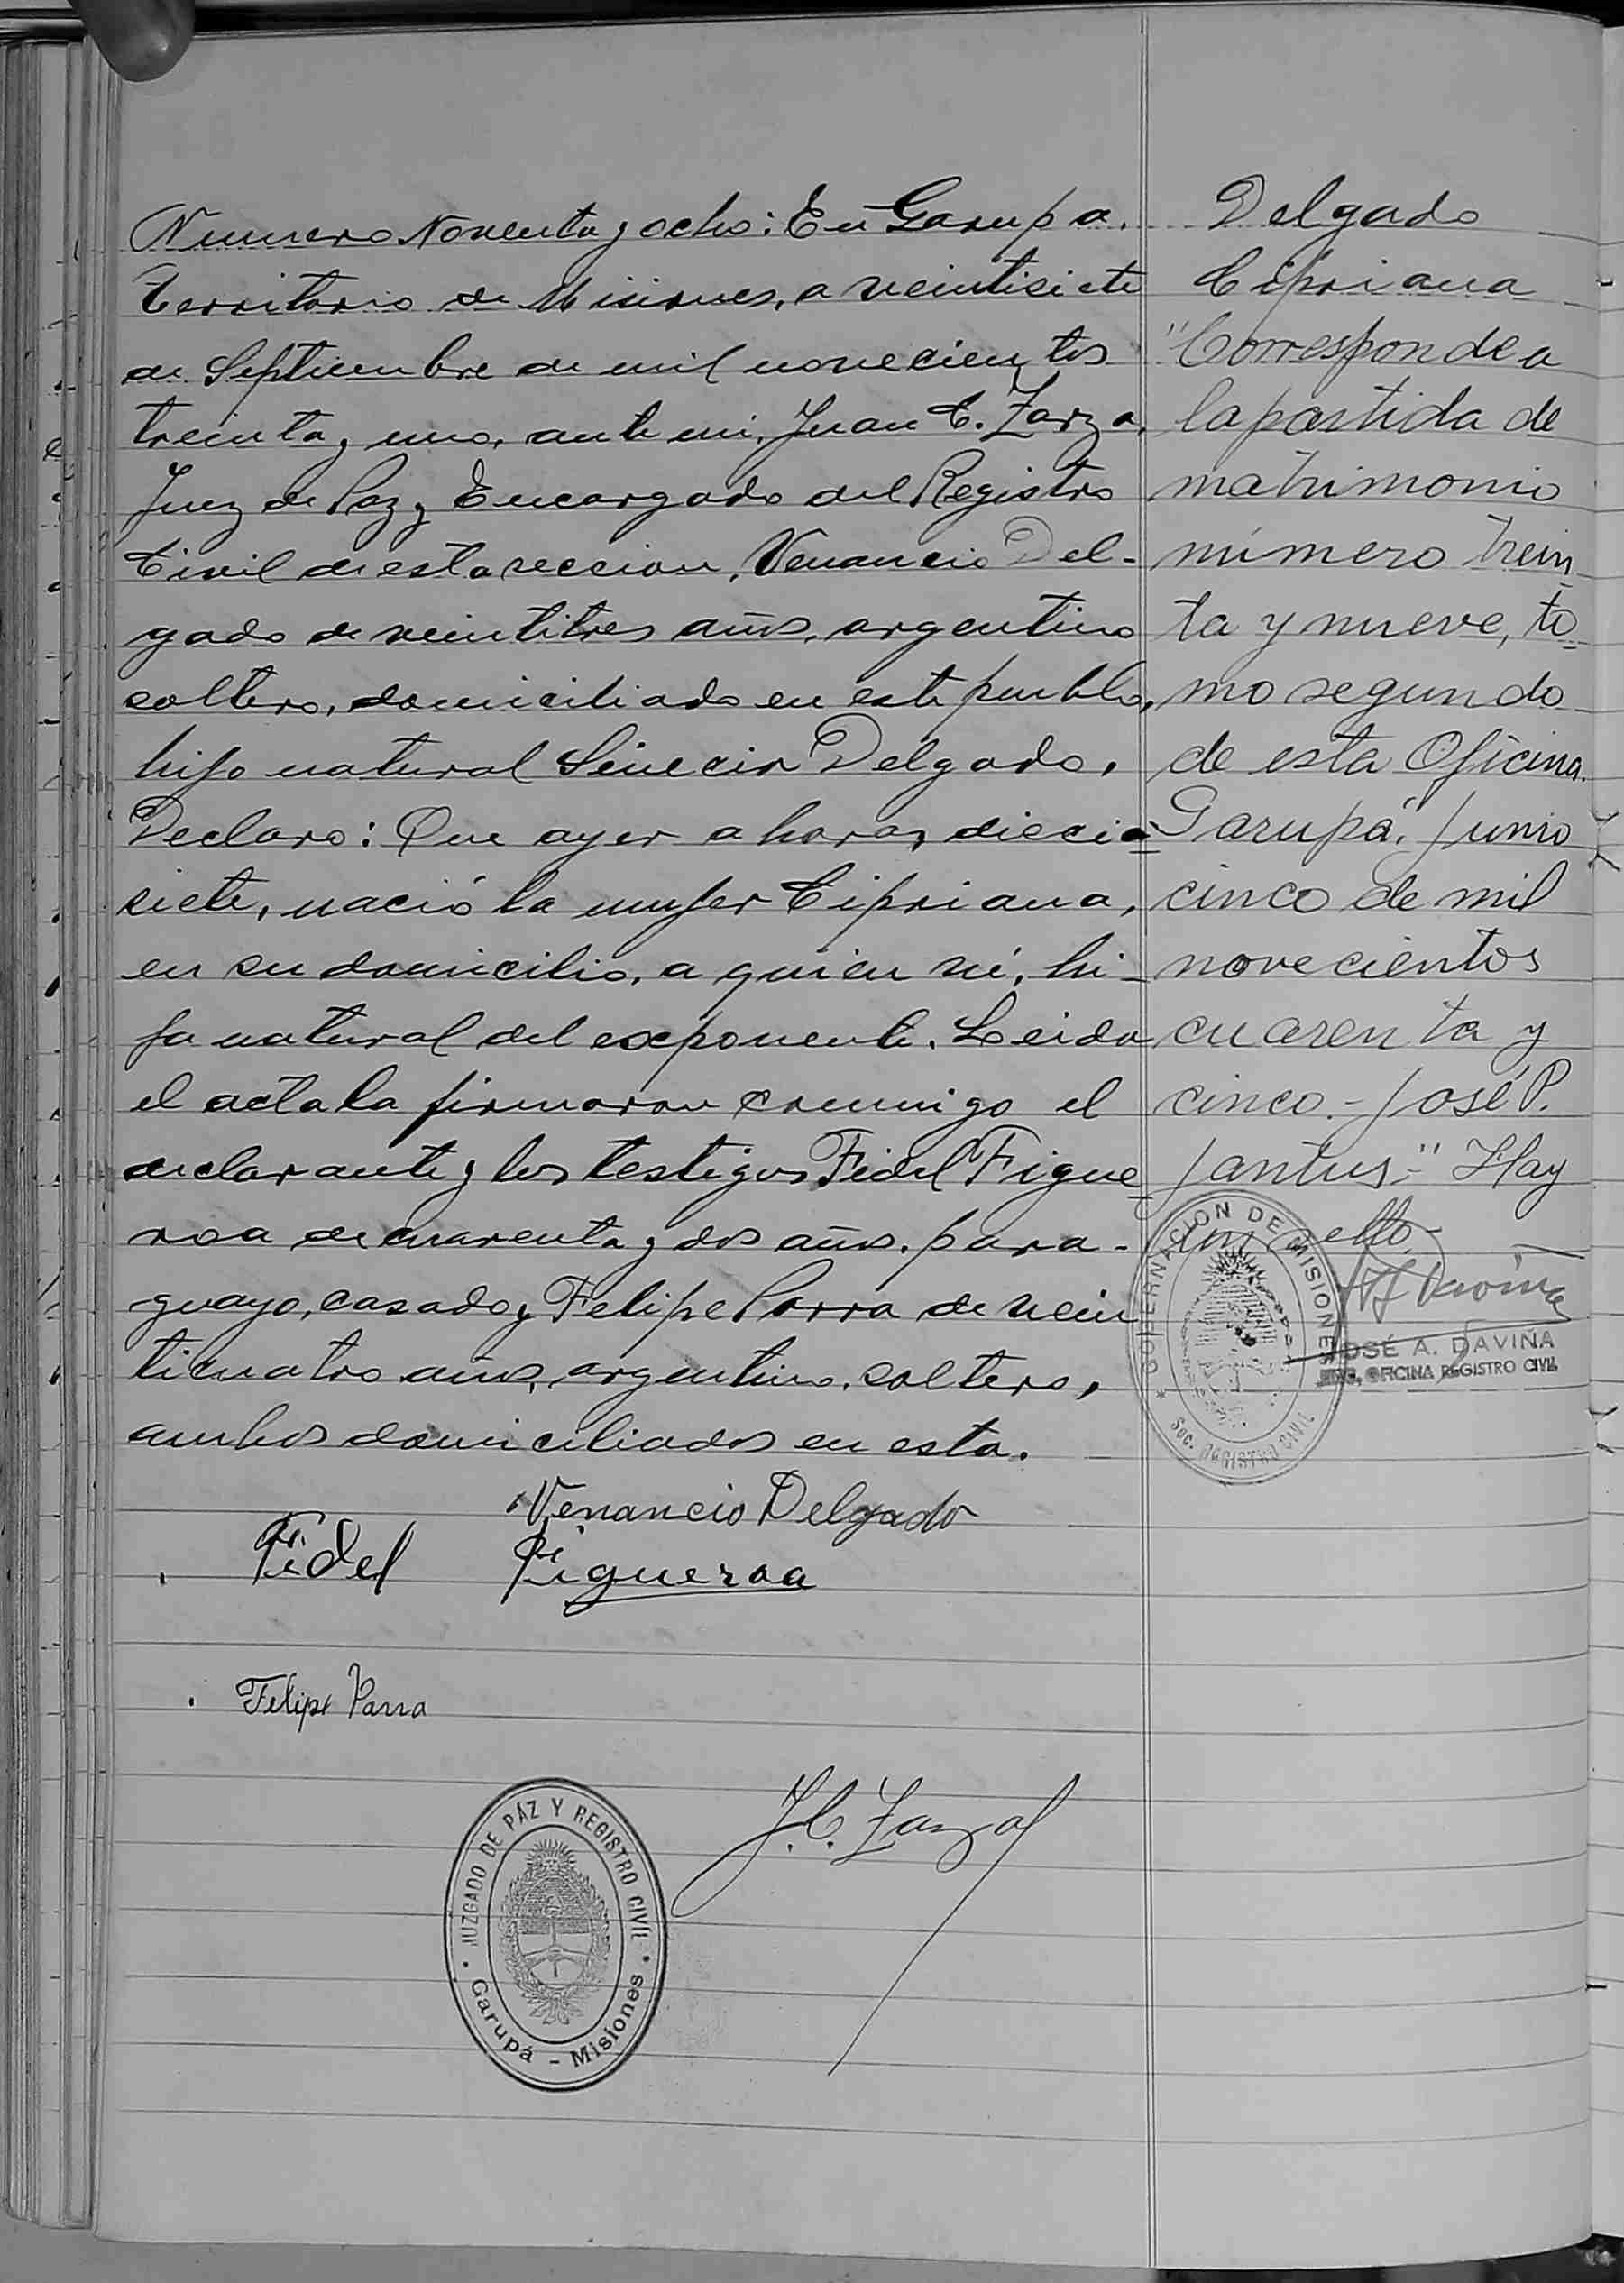 Numero Noventa y ocho: En Garupa.
Territorio de Misiones, a veintisiete
de Septiembre de mil novecientos
treinta y uno, ante mi, Juan C. Zarza,
Juez de Paz y Encargado del Registro
Civil de esta seccion, Venancio Del-
gado de veintitres años, argentino
soltero, domiciliado en este pueblo,
hijo natural Delgado,
Declaro: Que ayer a horas diecia
siete, nació la mujer Cipriana,
en su domicilio, a quien ví, hi-
ja natural del exponente. Leida
el acta la firmaron conmigo el
declarante y los testigos Fidel Figue
roa de cuarenta y dos años, para-
guayo, casado y Felipe Parra de vein
ticuatro años, argentino, soltero,
ambos domiciliados en esta.
Venancio Delgado
Fidel Figueroa
Felipe Parra
J. C. Zarza
JUZGADO DE PÁZ Y REGISTRO CIVIL
Garupá - Misiones
Delgado
Cipriana
"Corresponde a
la partida de
matrimonio
número trein
ta y nueve, to
mo segundo
de esta Oficina.
Garupá", Junio
cinco de mil
novecientos
cuarenta y
cinco.- José P.
Jantus.-" Hay
un sello.-
GOBERNACION DE MISIONES
Sec. REGISTRO CIVIL
JOSÉ A. DAVIÑA
ENC. OFICINA REGISTRO CIVIL